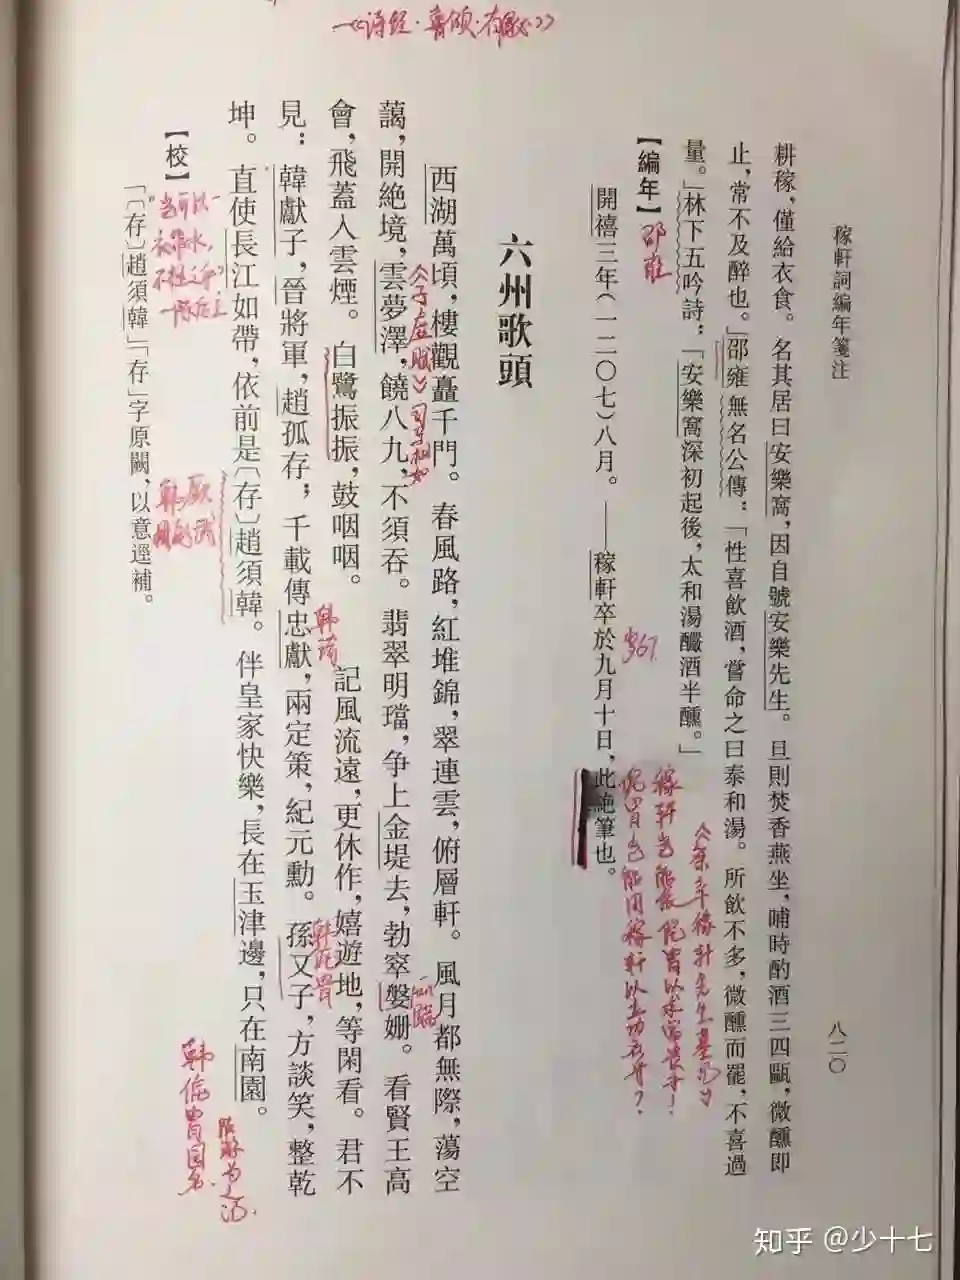 稼軒詞編年箋注
八二〇
耕稼，僅給衣食。名其居曰安樂窩，因自號安樂先生。旦則焚香燕坐，晡時酌酒三四甌，微醺即
止，常不及醉也。」邵雍無名公傳：「性喜飲酒，嘗命之曰泰和湯。所飲不多，微醺而罷，不喜過
量。」林下五吟詩：「安樂窩深初起後，太和湯釅酒半醺。」
【編年】
邵雍
開禧三年（一二〇七）八月。——稼軒卒於九月十日，此絶筆也。
歲67
六州歌頭
西湖萬頃，樓觀矗千門。春風路，紅堆錦，翠連雲，俯層軒。風月都無際，蕩空
藹，開絶境，雲夢澤，饒八九，不須吞。翡翠明璫，争上金堤去，勃窣媻姗。看賢王高
會，飛蓋入雲煙。白鷺振振，鼓咽咽。　　記風流遠，更休作，嬉遊地，等閑看。君不
見：韓獻子，晉將軍，趙孤存；千載傳忠獻，兩定策，紀元勳。孫又子，方談笑，整乾
坤。直使長江如帶，依前是〔存〕趙須韓。伴皇家快樂，長在玉津邊，只在南園。
《诗经·鲁颂·有駜》
《子虚赋》司马相如
韩琦
韩侂胄
韩侂胄园名
【校】
「〔存〕趙須韓」「存」字原闕，以意逕補。
知乎 @少十七